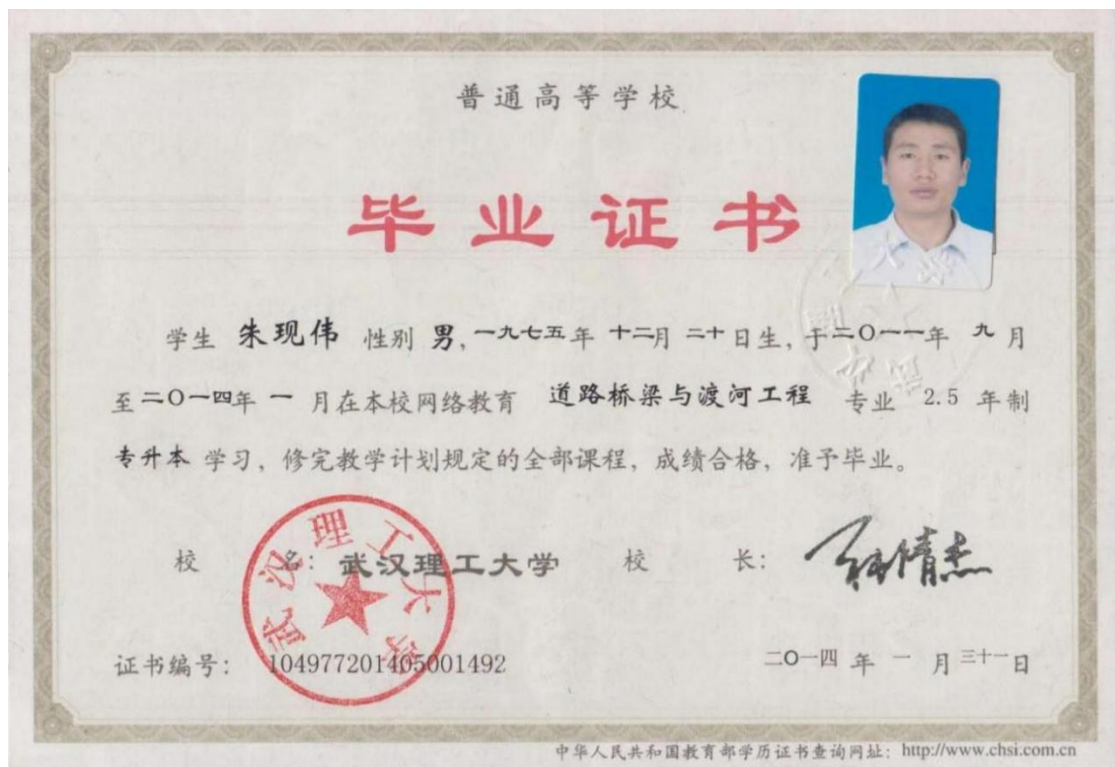 普通高等学校
毕业证书
学生 朱现伟 性别 男，一九七五年 十二月 二十日生，于二〇一一年 九月
至二〇一四年 一 月在本校网络教育 道路桥梁与渡河工程 专业 2.5 年制
专升本 学习，修完教学计划规定的全部课程，成绩合格，准予毕业。
校 名：武汉理工大学 校 长：
武汉理工大学
证书编号：104977201405001492 二〇一四 年 一 月 三十一日
中华人民共和国教育部学历证书查询网址：http://www.chsi.com.cn